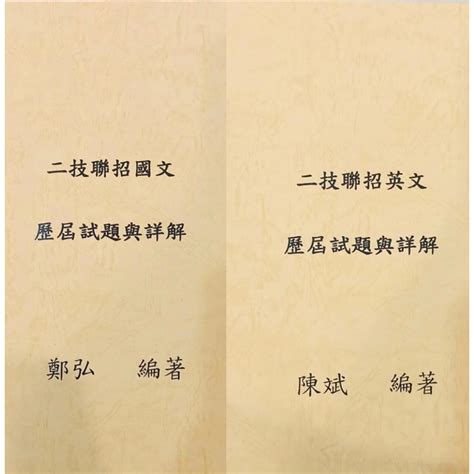 二技聯招國文
歷屆試題與詳解
鄭弘 編著
二技聯招英文
歷屆試題與詳解
陳斌 編著